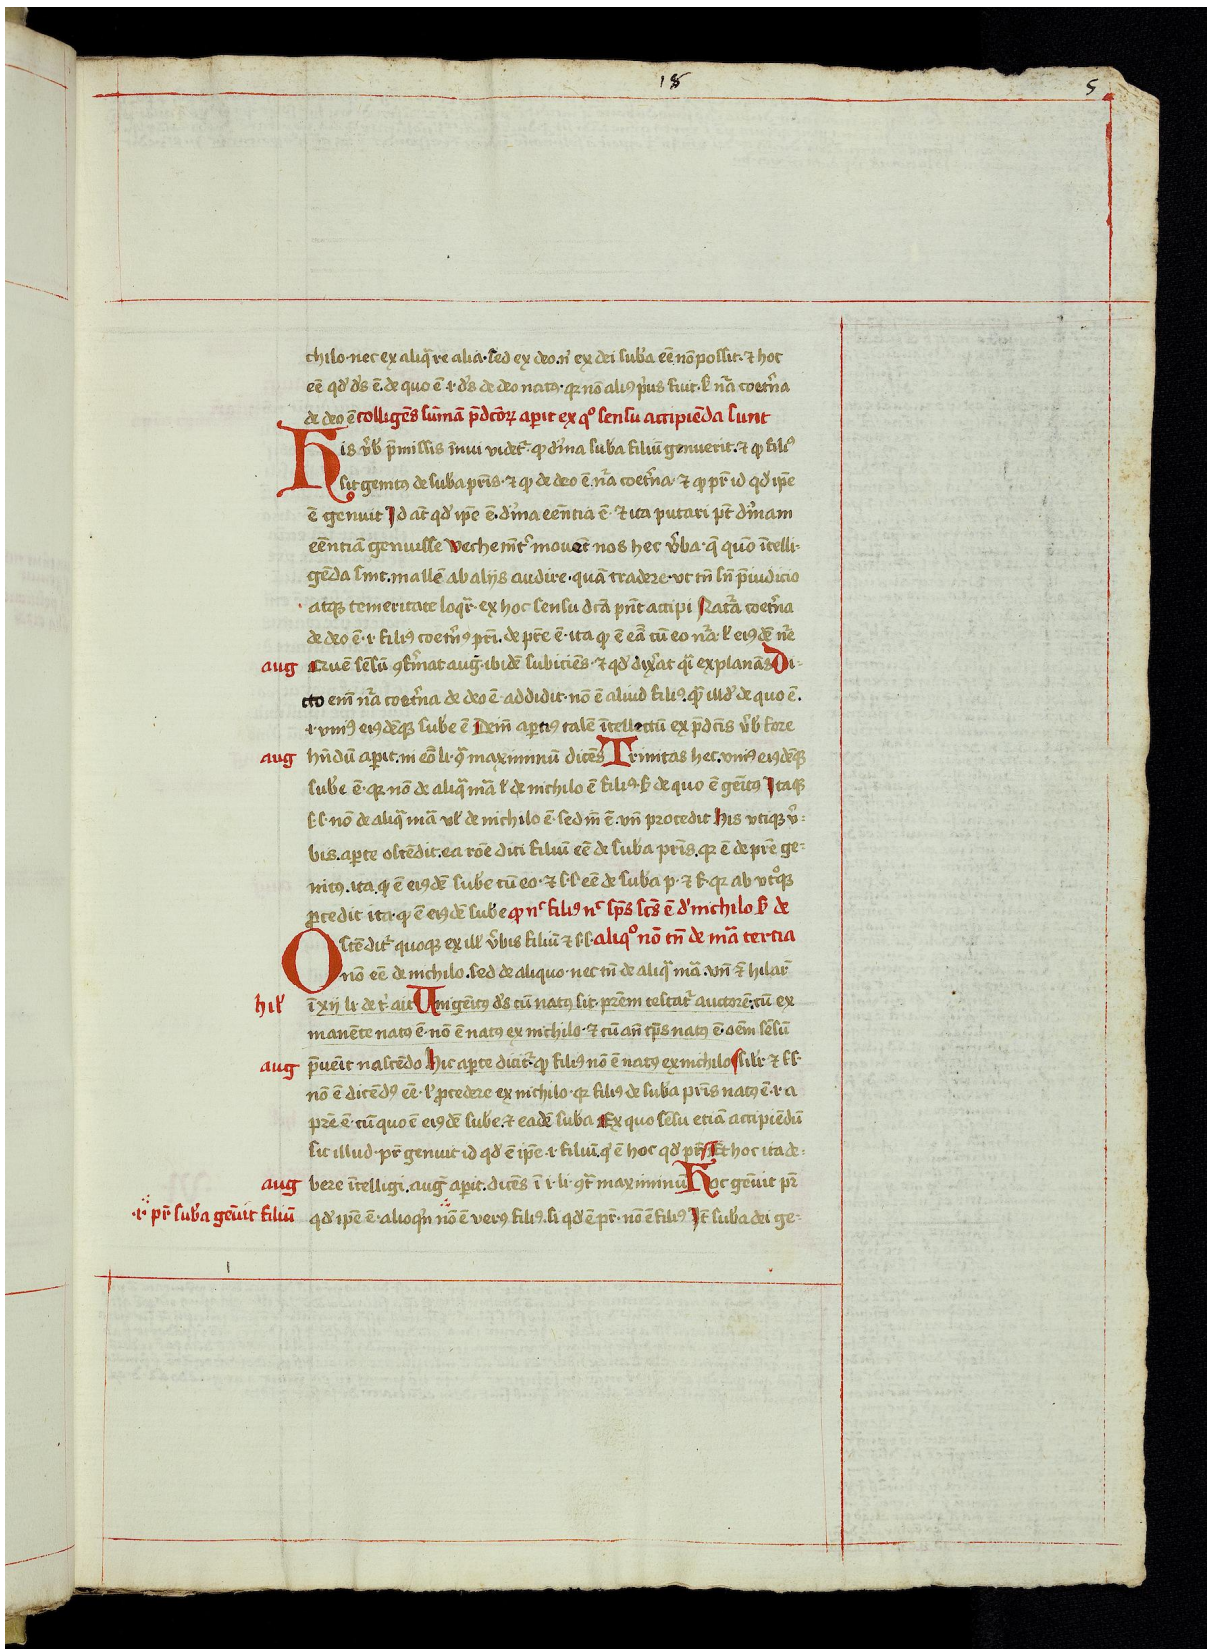 18
5
chilo · nec ex aliq̄ re alia · sed ex deo · n̄ ex dei sub̄a eē nō possit · ⁊ hoc
eē qd̄ ds̄ ē · de quo ē · i · ds̄ de deo natꝰ · qꝛ nō aliꝰ pͥus fuit · sꝫ nr̄a coet̄na
de deo ē colligēs sūmā p̄dcōꝝ aperit ex qͦ sensu accipiēda sunt
His v̄b p̄missis īnui videt᷑ · qꝙ diͥna sub̄a filiū genuerit · ⁊ qꝙ filiꝰ
sit genitꝰ de sub̄a pr̄is · ⁊ qꝙ de deo ē nr̄a coet̄na · ⁊ qꝙ pr̄ id qd̄ ip̄e
ē genuit Id at̄ qd̄ ip̄e ē · diͥna eēntia ē · ⁊ ita putari pt̄ diͥnam
eēntiā genuisse Vehem̄t᷑ movēt nos hec v̄ba · q̄ quō ītelli ·
gēda sint · mallē ab alijs audire · quā tradere · vt tn̄ sn̄ p̄iudicio
atqꝫ temeritate loqr̄ · ex hoc sensu dc̄a pn̄t accipi Natr̄a coet̄na
de deo ē · i · filiꝰ coet̄nꝰ pr̄i · de pr̄e ē · ita qꝙ ē eā cū eo nr̄a · l̄ eiꝰdē nr̄e
aug
Quē sēsū ꝯfirmat auḡ · ibidē subiciēs · ⁊ qd̄ dix̄at qͣi explanās Di ·
cto em̄ nr̄a coet̄na de deo ē · addidit · nō ē aliud filiꝰ · qͣ illd̄ de quo ē ·
· i · vniꝰ eiꝰdēqꝫ sube ē Itē apertiꝰ talē ītellectū ex p̄dcīs v̄b fore
aug
hn̄dū aperit · in eō li · ꝯ maximinū dicēs Trinitas hec · vniꝰ eiꝰdēqꝫ
sub̄e ē · qꝛ nō de aliq̄ mā l̄ de nichilo ē filiꝰ · sꝫ de quo ē genitꝰ Itaqꝫ
s · s · nō de aliq̄ mā vl̄ de nichilo ē · sed in̄ ē · vn̄ procedit His vtiqꝫ v̄ ·
bis · ap̄te ostēdit · ea rōne dici filiū eē de sub̄a pr̄is · qꝛ ē de pr̄e ge ·
nitꝰ · ita · qꝙ ē eiꝰdē sub̄e cū eo · ⁊ s · s · eē de sub̄a p · ⁊ f · qꝛ ab vtͦqꝫ
ꝓcedit ita · qꝙ ē eiꝰdē sub̄e qꝙ nͨ filiꝰ nͨ sp̄s sc̄s ē d̄ nichilo sꝫ de
Ostēdit᷑ quoqꝫ ex ill̄ v̄bis filiū ⁊ s · s · aliqͦ nō tn̄ de mā tercia
nō eē de nichilo · sed de aliquo · nec tn̄ de aliq̄ mā · vn̄ ⁊ hilar̄
hil̄
ī xij li · de t̄ · ait Vnigēitꝰ ds̄ cū natꝰ sit · prēm testat᷑ auctorē · cū ex
manēte natꝰ ē · nō ē natꝰ ex nichilo · ⁊ cū an̄ tp̄s natꝰ ē · oēm sēsū
aug
p̄uēit nascēdo Hic ap̄te dicit᷑ · qꝙ filiꝰ nō ē natꝰ ex nichilo Silr̄ · ⁊ s · s ·
nō ē dicēdꝰ eē · l̄ ꝓcedere ex nichilo · qꝛ filiꝰ de sub̄a pr̄is natꝰ ē · i · a
pr̄e ē · cū quo ē eiꝰdē sub̄e · ⁊ eadē sub̄a Ex quo sēsu etiā accipiēdū
sit illud · pr̄ genuit id qd̄ ē ip̄e · i · filiū · q̄ ē hoc qd̄ pr̄ Et hoc ita de ·
aug
bere ītelligi · auḡ aperit · dicēs ī · i · li · ꝯ maximinū Hoc gēuit pr̄
· i · pr̄ sub̄a gēuit filiū
qd̄ ip̄e ē · alioqͥn nō ē verꝰ filiꝰ · si qd̄ ē pr̄ · nō ē filiꝰ It̄ sub̄a dei ge ·